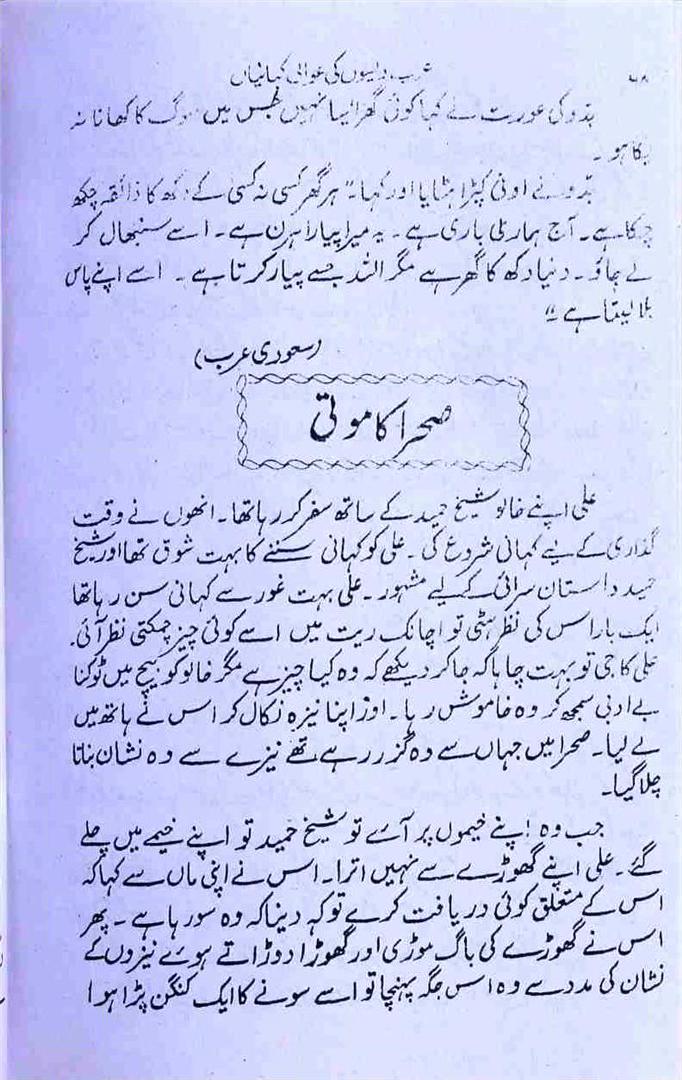 ۶۸ عرب دیسوں کی عوامی کہانیاں
بدو کی عورت نے کہا کوئی گھر ایسا نہیں جس میں سوگ کا کھانا نہ
پکا ہو۔
بدو نے اونی کپڑا ہٹایا اور کہا۔" ہر گھر کسی نہ کسی کے دکھ کا ذائقہ چکھ
چکا ہے۔ آج ہماری باری ہے۔ یہ میرا پیارا ہرن ہے۔ اسے سنبھال کر
لے جاؤ۔ دنیا دکھ کا گھر ہے مگر اللہ جسے پیار کرتا ہے۔ اسے اپنے پاس
بلا لیتا ہے۔"
(سعودی عرب)
صحرا کا موتی
علی اپنے خالو شیخ حمید کے ساتھ سفر کر رہا تھا۔ انھوں نے وقت
گذاری کے لیے کہانی شروع کی۔ علی کو کہانی سننے کا بہت شوق تھا اور شیخ
حمید داستان سرائی کے لیے مشہور۔ علی بہت غور سے کہانی سن رہا تھا
ایک بار اس کی نظر ہٹی تو اچانک ریت میں اسے کوئی چیز چمکتی نظر آئی۔
علی کا جی تو بہت چاہا کہ جا کر دیکھے کہ وہ کیا چیز ہے مگر خالو کو بیچ میں ٹوکنا
بے ادبی سمجھ کر وہ خاموش رہا۔ اور اپنا نیزہ نکال کر اس نے ہاتھ میں
لے لیا۔ صحرا میں جہاں سے وہ گزر رہے تھے نیزے سے وہ نشان بناتا
چلا گیا۔
جب وہ اپنے خیموں پر آئے تو شیخ حمید تو اپنے خیمے میں چلے
گئے۔ علی اپنے گھوڑے سے نہیں اترا۔ اس نے اپنی ماں سے کہا کہ
اس کے متعلق کوئی دریافت کرے تو کہہ دینا کہ وہ سو رہا ہے۔ پھر
اس نے گھوڑے کی باگ موڑی اور گھوڑا دوڑاتے ہوئے نیزوں کے
نشان کی مدد سے وہ اس جگہ پہنچا تو اسے سونے کا ایک کنگن پڑا ہوا